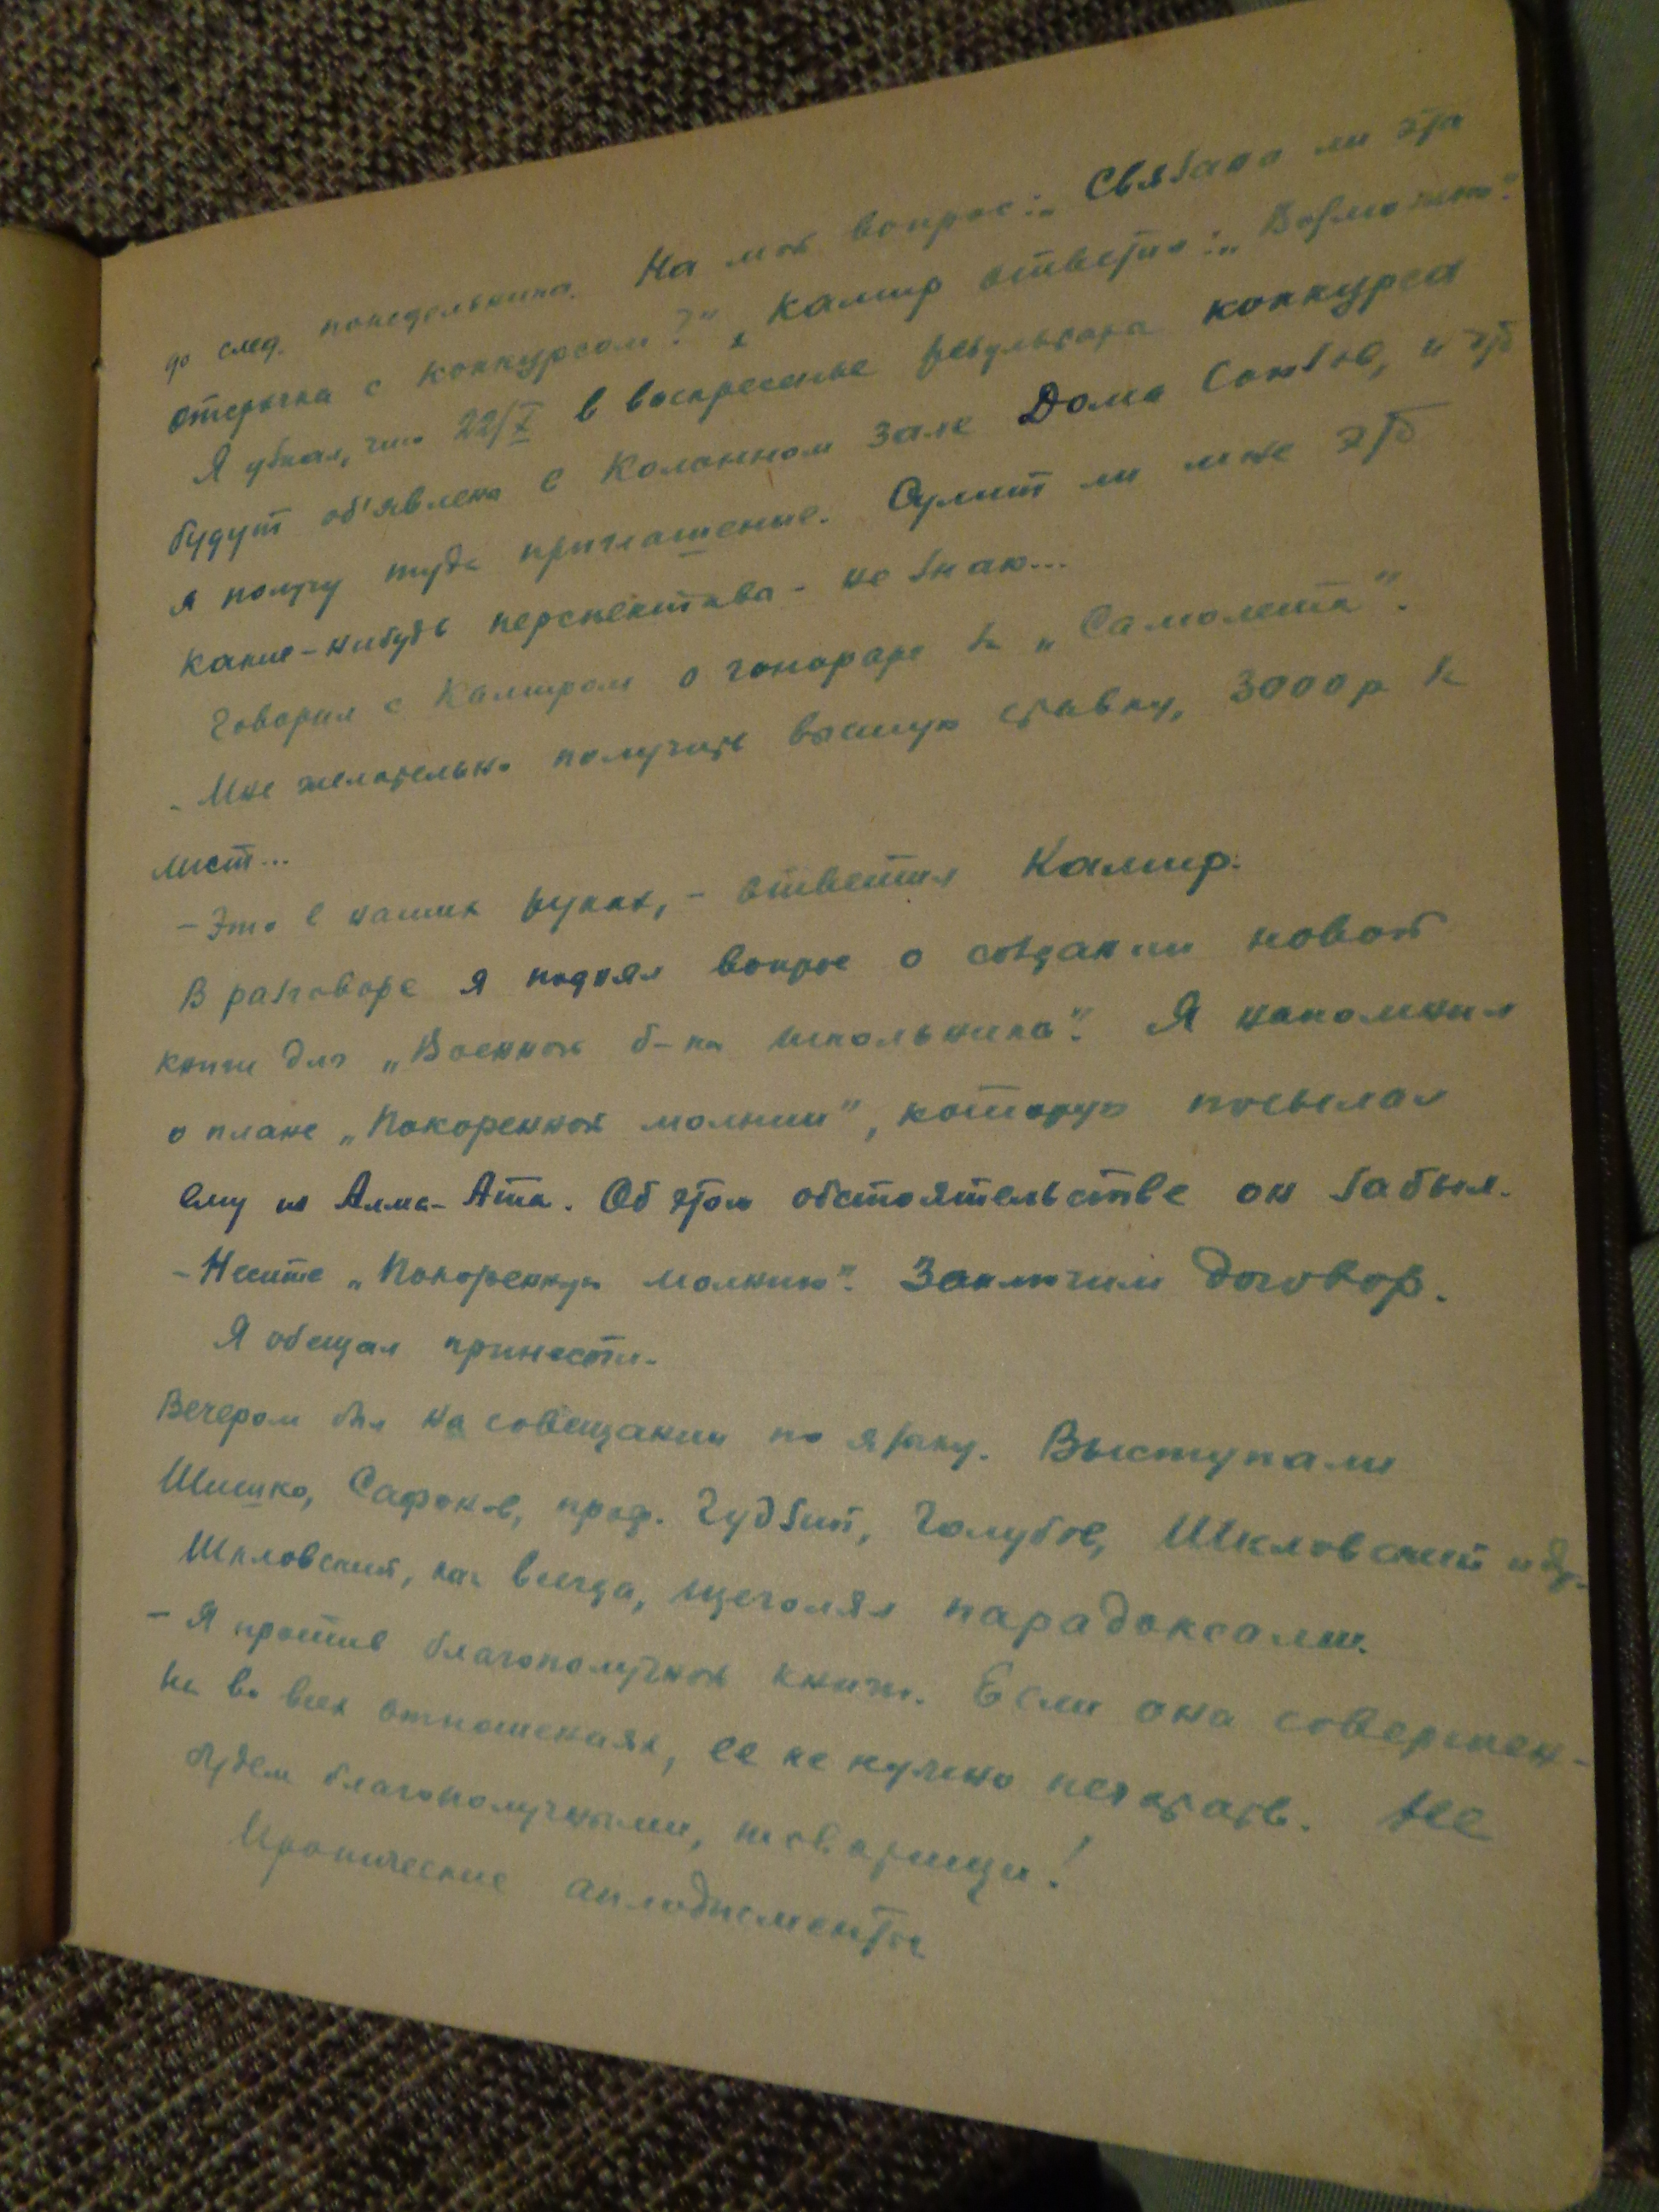 до след. понедельника. На мой вопрос: „Связана ли эта
отсрочка с конкурсом?", Камир ответил: „Возможно".
Я узнал, что 22/X в воскресенье результаты конкурса
будут об'явлены в Колонном зале Дома Союзов, и что
я получу туда приглашение. Сулит ли мне это
какие-нибудь перспективы - не знаю...
Говорил с Камиром о гонораре за „Самолеты".
- Мне желательно получить высшую ставку, 3000 р за
лист...
- Это в наших руках, - ответил Камир.
В разговоре я поднял вопрос о создании новой
книги для „Военной б-ки школьника". Я напомнил
о плане „Покоренной молнии", которую посылал
ему из Алма-Ата. Об этом обстоятельстве он забыл.
- Несите „Покоренную молнию". Заключим договор.
Я обещал принести.
Вечером был на совещании по языку. Выступали
Шишко, Сафонов, проф. Гудзий, Голубов, Шкловский и др.
Шкловский, как всегда, щеголял парадоксами.
- Я против благополучной книги. Если она совершен-
на во всех отношениях, ее не нужно печатать. Не
будем благополучными, товарищи!
Иронические аплодисменты